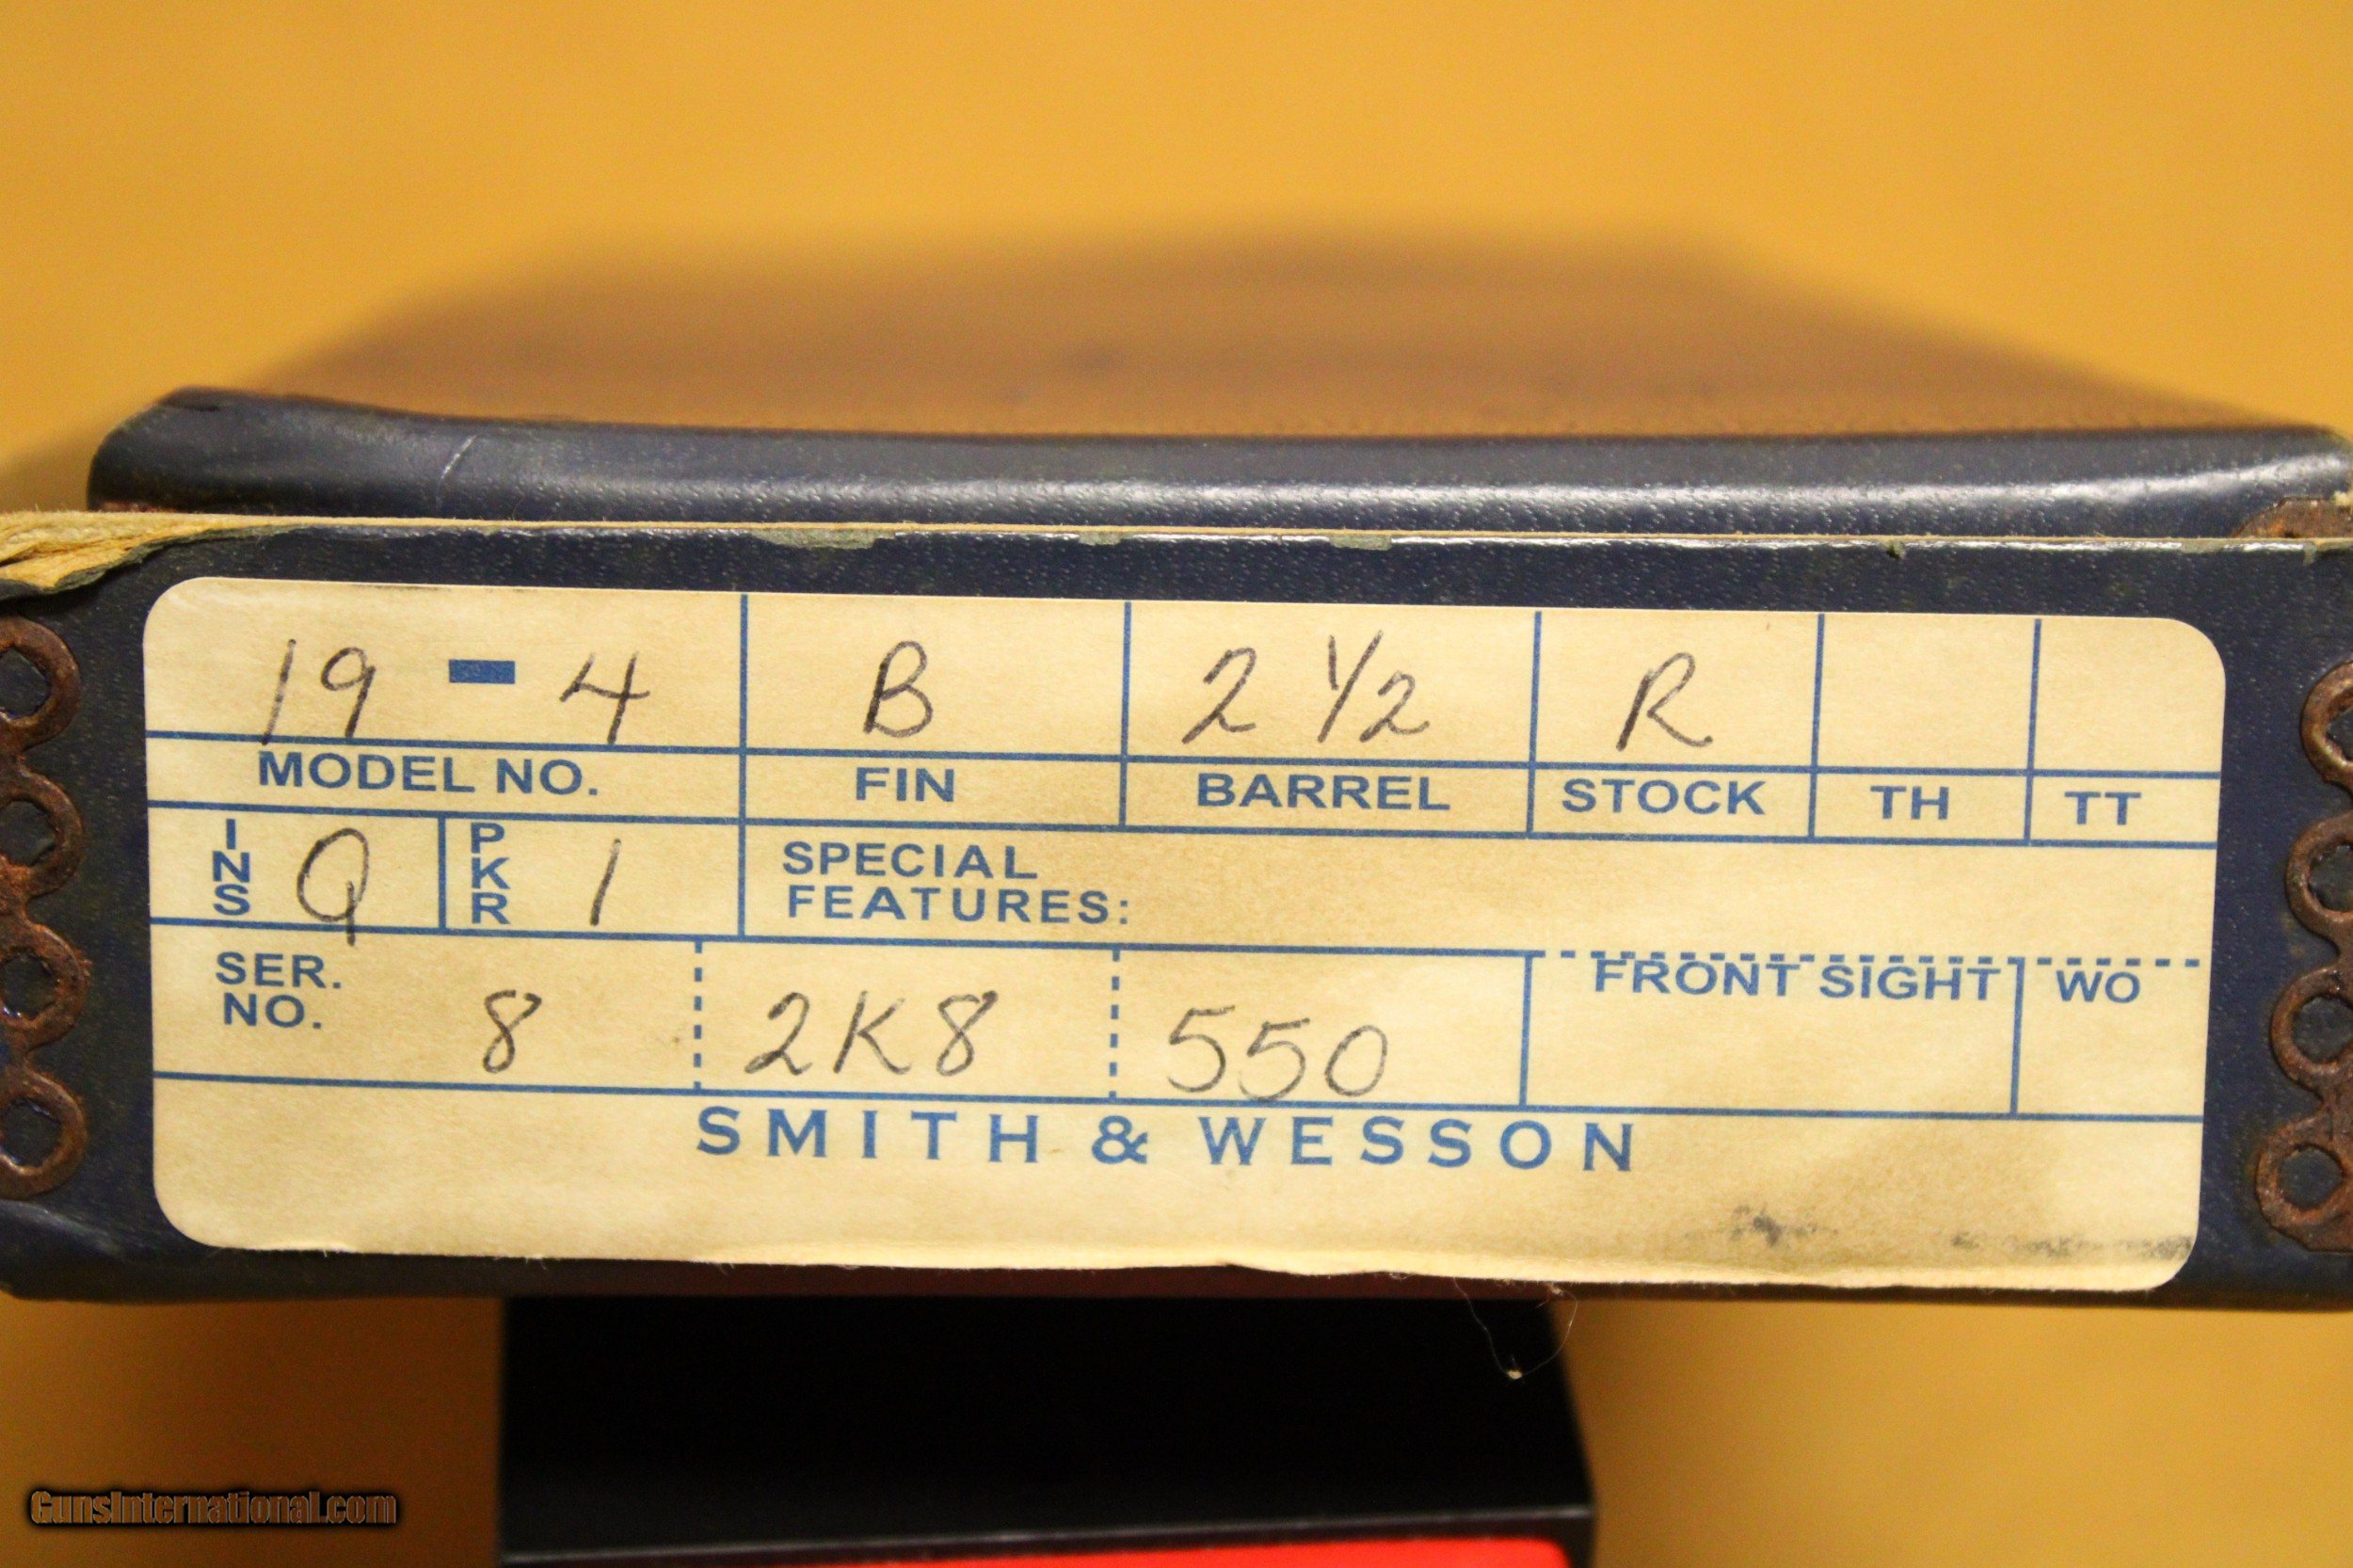 19 - 4 B 2 1/2 R
MODEL NO. FIN BARREL STOCK TH TT
INS Q PKR 1 SPECIAL
FEATURES:
SER. FRONT SIGHT WO
NO. 8 2K8 550
SMITH & WESSON
GunsInternational.com